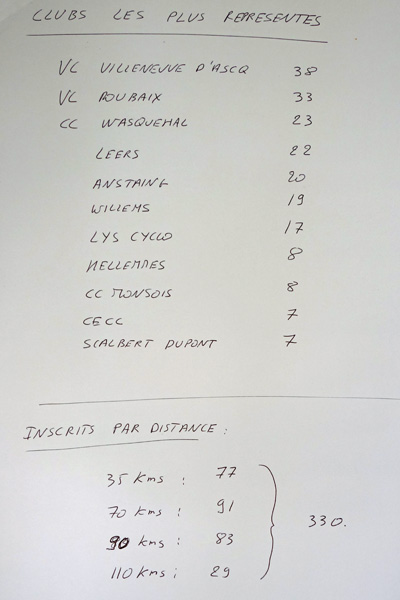 CLUBS LES PLUS REPRESENTES
VC VILLENEUVE D'ASCQ 38
VC ROUBAIX 33
CC WASQUEHAL 23
LEERS 22
ANSTAING 20
WILLEMS 19
LYS CYCLO 17
HELLEMMES 8
CC MONSOIS 8
CECC 7
SCALBERT DUPONT 7
INSCRITS PAR DISTANCE :
35 kms : 77
70 kms : 91
90 kms : 83
110 kms : 29
330.